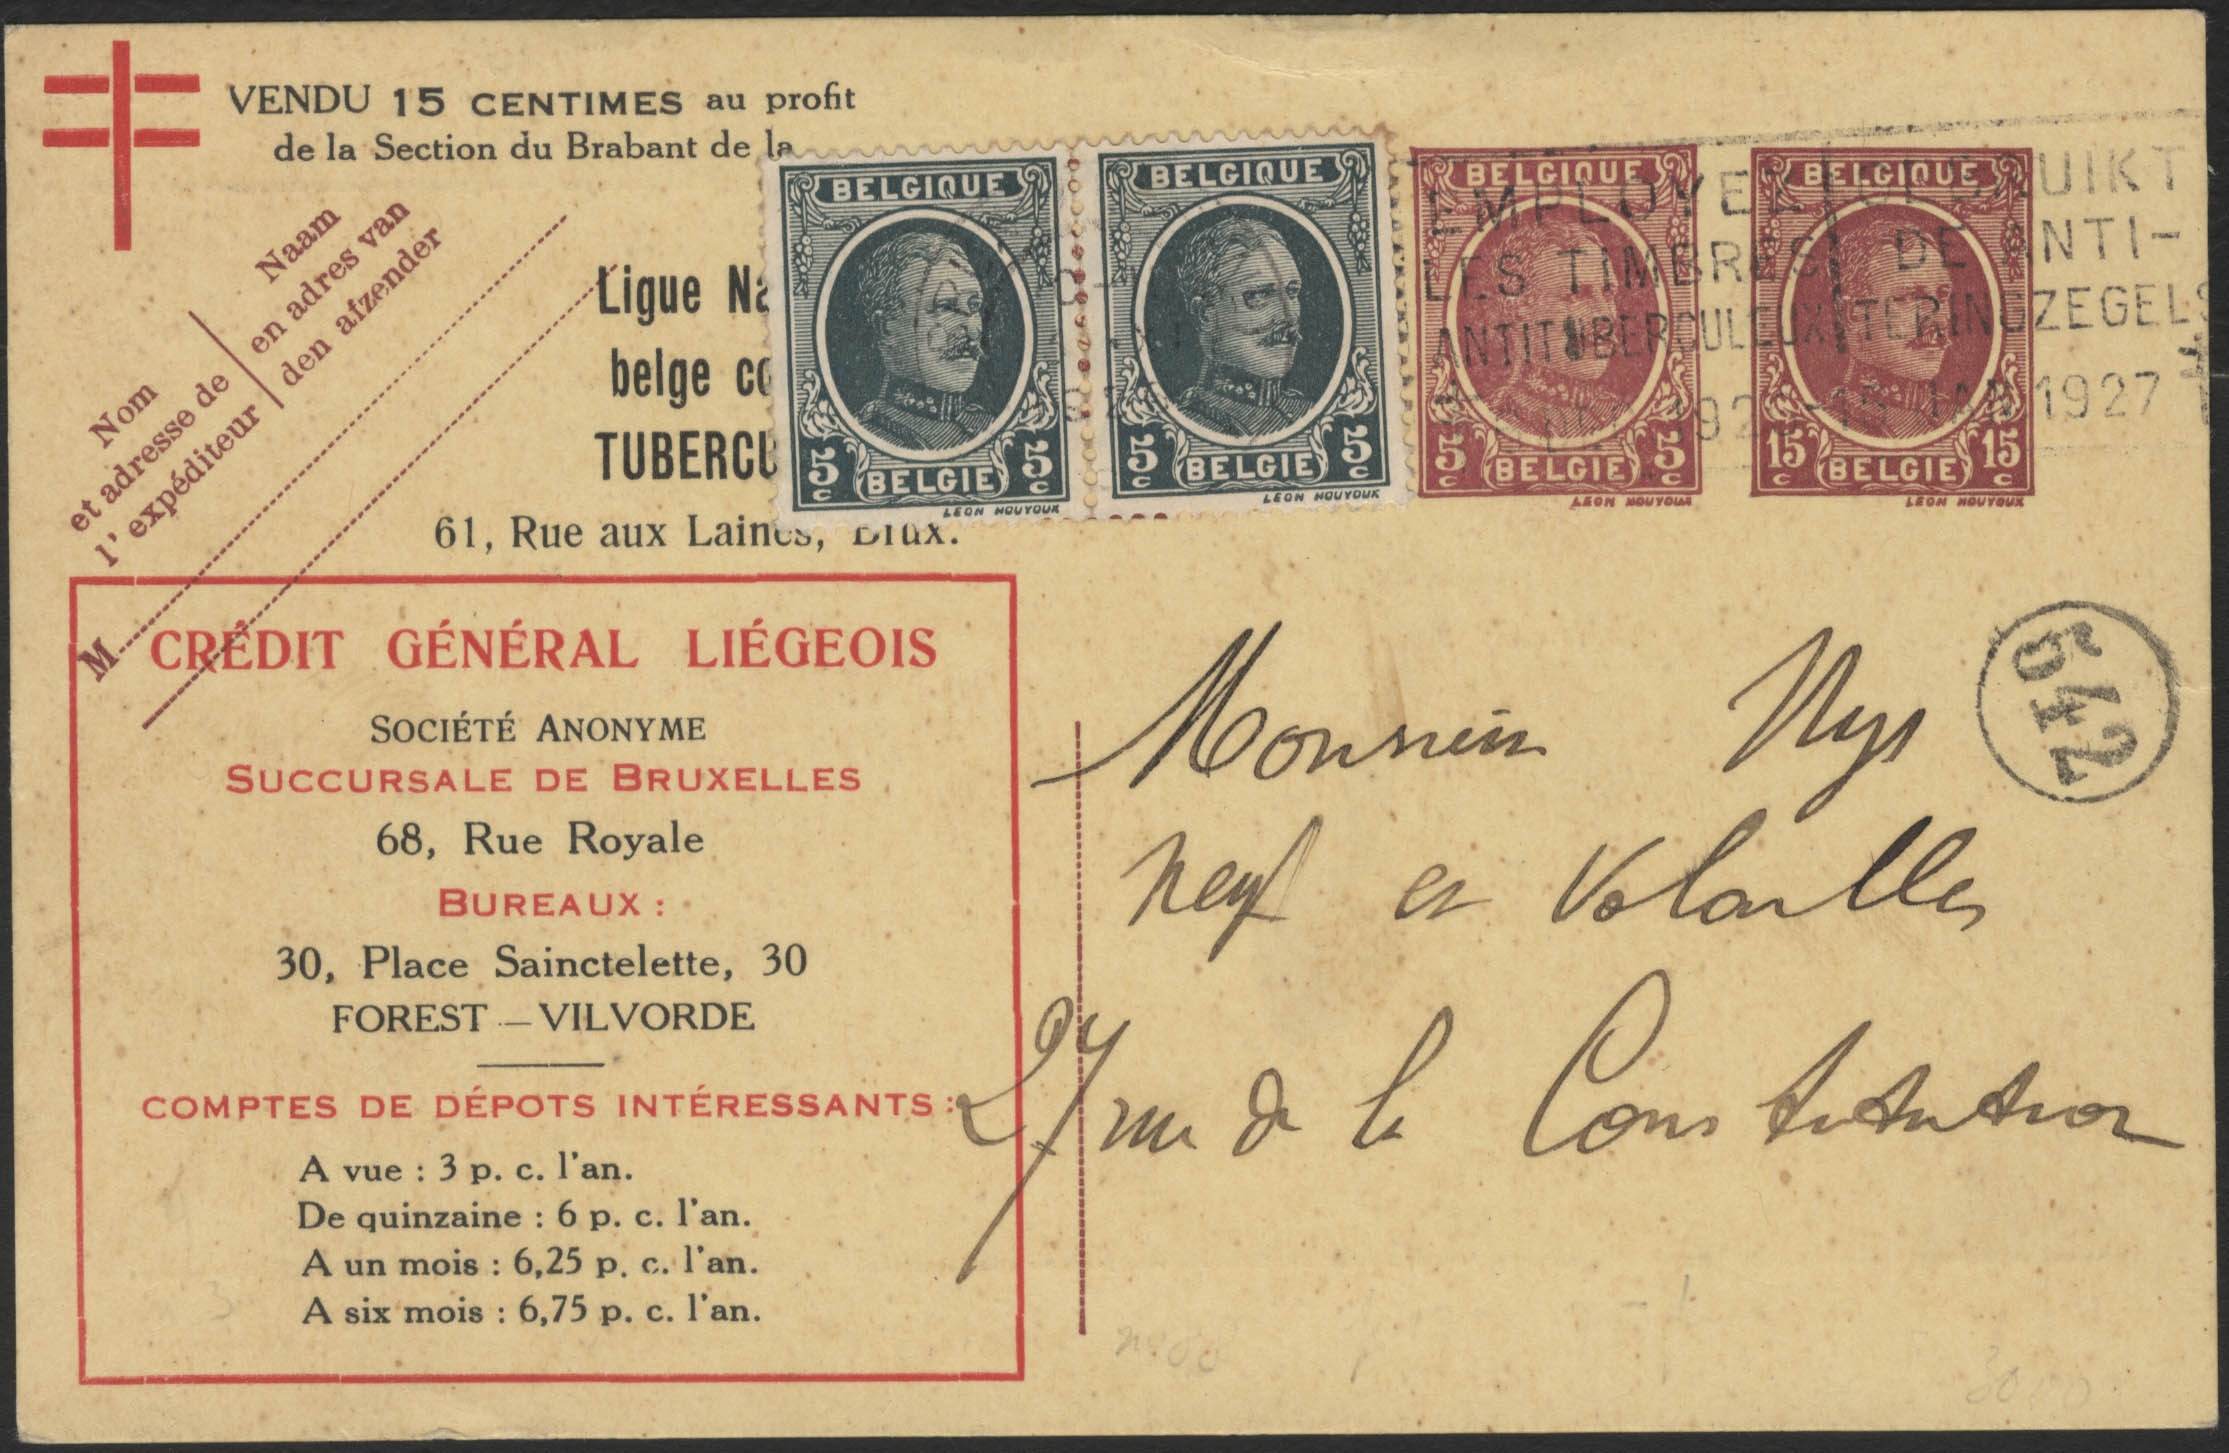 VENDU 15 CENTIMES au profit
de la Section du Brabant de la
Ligue Na
belge co
TUBERCU
61, Rue aux Laines, Brux.
Naam
en adres van
den afzender
Nom
et adresse de
l'expéditeur
M
BELGIQUE
5c BELGIE 5c
LEON HOUYOUX
BELGIQUE
5c BELGIE 5c
LEON HOUYOUX
BELGIQUE
5c BELGIE 5c
LEON HOUYOUX
BELGIQUE
15c BELGIE 15c
LEON HOUYOUX
EMPLOYEZ
LES TIMBRES
ANTITUBERCULEUX
GEBRUIKT
DE ANTI-
TERINGZEGELS
JAN 1927
542
CRÉDIT GÉNÉRAL LIÉGEOIS
SOCIÉTÉ ANONYME
SUCCURSALE DE BRUXELLES
68, Rue Royale
BUREAUX :
30, Place Sainctelette, 30
FOREST — VILVORDE
COMPTES DE DÉPOTS INTÉRESSANTS :
A vue : 3 p. c. l'an.
De quinzaine : 6 p. c. l'an.
A un mois : 6,25 p. c. l'an.
A six mois : 6,75 p. c. l'an.
Monsieur Nys
et Volailles
27 rue de la Constitution